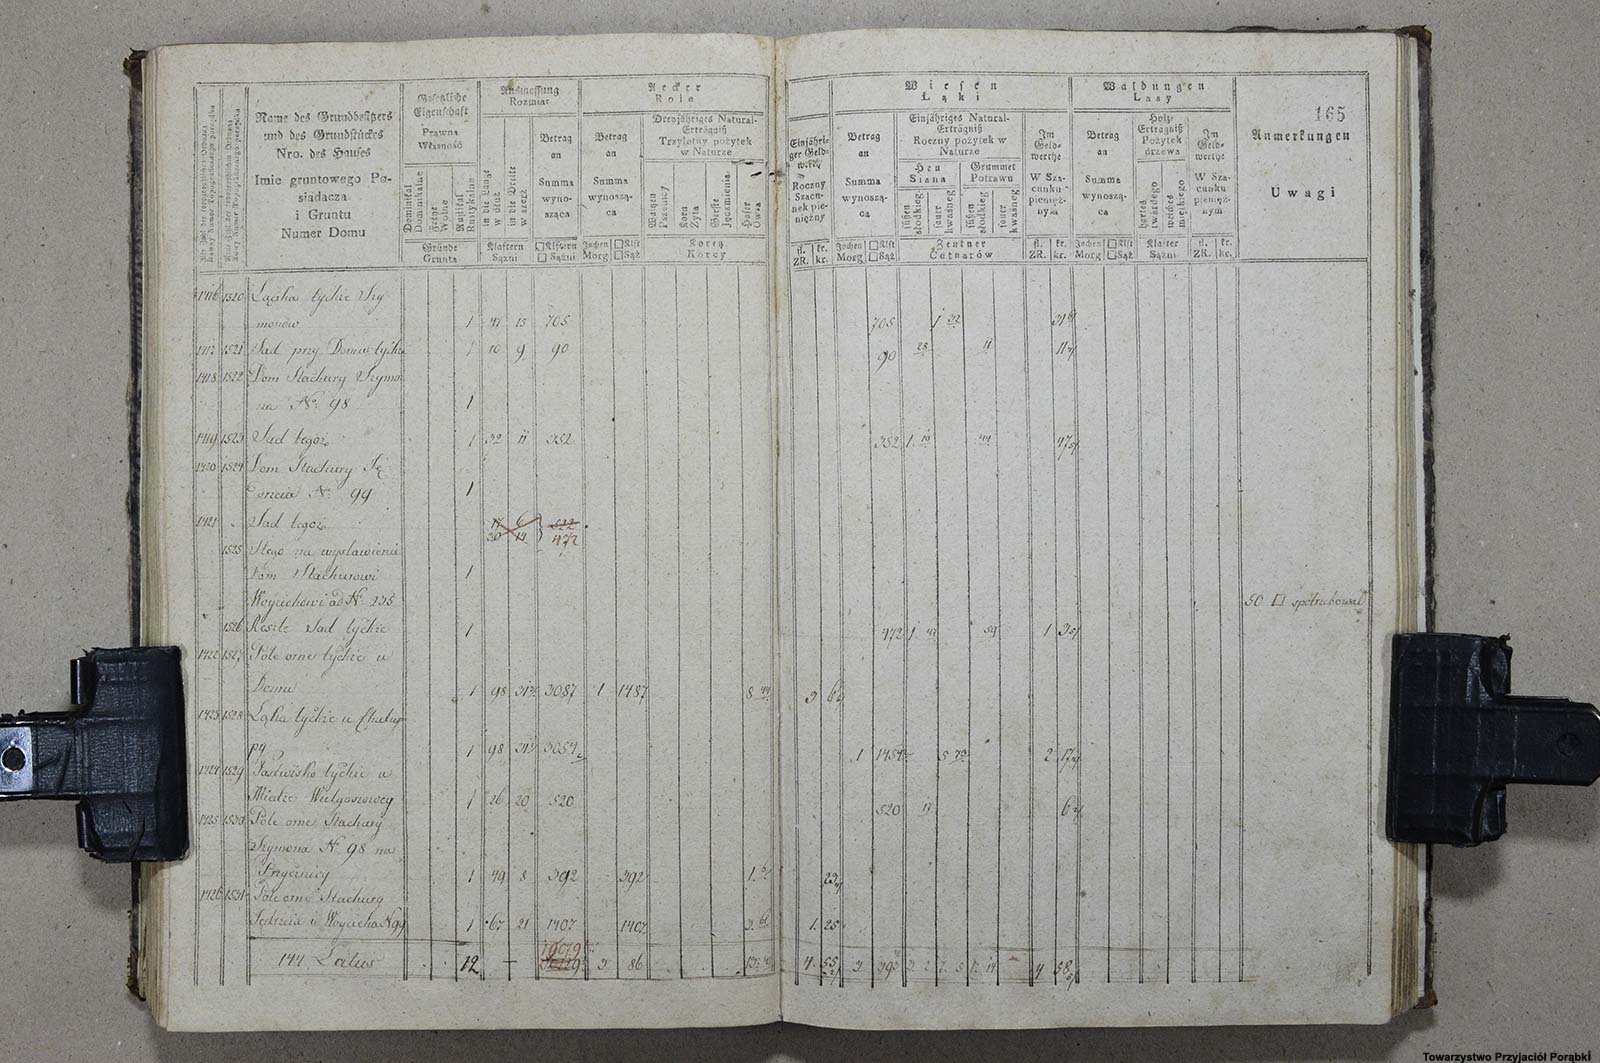 165
Name des Grundbesitzers
und des Grundstückes
Nro. des Hauses
Imie gruntowego Po-
siadacza
i Gruntu
Numer Domu
Gesetzliche
Eigenschaft
Prawna
Własność
Dominikal
Dominikalne
Freye
Wolne
Rustikal
Rustykalne
Gründe
Grunta
Ausmessung
Rozmiar
in die Länge
w dłuż
in die Breite
w szerz
Betrag
an
Summa
wyno-
sząca
Klaftern
Sążni
□ Klftern
□ Sążni
Aecker
Role
Betrag
an
Summa
wynoszą-
ca
Jochen
Morg
□ Klft
□ Sąż
Dreyjähriges Natural-
Erträgniß
Trzyletny pożytek
w Naturze
Waitzen
Pszenicy
Korn
Żyta
Gerste
Jęczmienia
Haber
Owsa
Koretz
Korcy
Einjähri-
ger Geld-
werth
Roczny
Szacu-
nek pie-
niężny
fl. kr.
ZR. kr.
Wiesen
Łąki
Betrag
an
Summa
wynoszą-
ca
Jochen
Morg
□ Klft
□ Sąż
Einjähriges Natural-
Erträgniß
Roczny pożytek w
Naturze
Heu
Siana
Grummet
Potrawu
süßen
słodkiego
sauer
kwaśneg
süßen
słodkieg
sauer
kwaśneg
Zentner
Cetnarów
Im
Geld-
werthe
W Sza-
cunku
pienięż-
nym
fl. kr.
ZR. kr.
Waldungen
Lasy
Betrag
an
Summa
wynoszą-
ca
Jochen
Morg
□ Klft
□ Sąż
Holz-
Erträgniß
Pożytek
drzewa
hartes
twardego
weiches
miękiego
Klafter
Sążni
Im
Geld-
werthe
W Sza-
cunku
pienięż-
nym
fl. kr.
ZR. kr.
Anmerkungen
Uwagi
1416 1520 Łąka tychże Szy
monów 1 47 15 705 705 1 32
1417 1521 Sad przy Domu tychże 1 10 9 90 90 28 11
1418 1522 Dom Stachury Szymo
na No 98 1
1419 1523 Sad tegoż 1 32 11 352 352 1 10 44
1420 1524 Dom Stachury Ję
drzeia No 99 1
1421 Sad tegoż 522
472
1525 Stego na wystawienie
Dom Stachurowi 1
Woyciechowi ad No 235 50 □ spotrzebował
1526 Reszte Sad tychże 1 472 1 59 1
1422 1527 Pole orne tychże u
Domu 1 98 3087 1 1487 8 44 3
1423 1528 Łąka tychże u Chałup
py 1 98 1 2
1424 1529 Pastwisko tychże u
Miedze Wielgoszowey 1 26 20 520 520 11
1425 1530 Pole orne Stachury
Szymona No 98 na
1 49 8 392 392
1426 1531 Pole orne Stachury
Jędrzeia i Woyciecha N 99 1 67 21 1407 1407 1 25
Latus 12 3 86 4 55 3 4 58
Towarzystwo Przyjaciół Porąbki